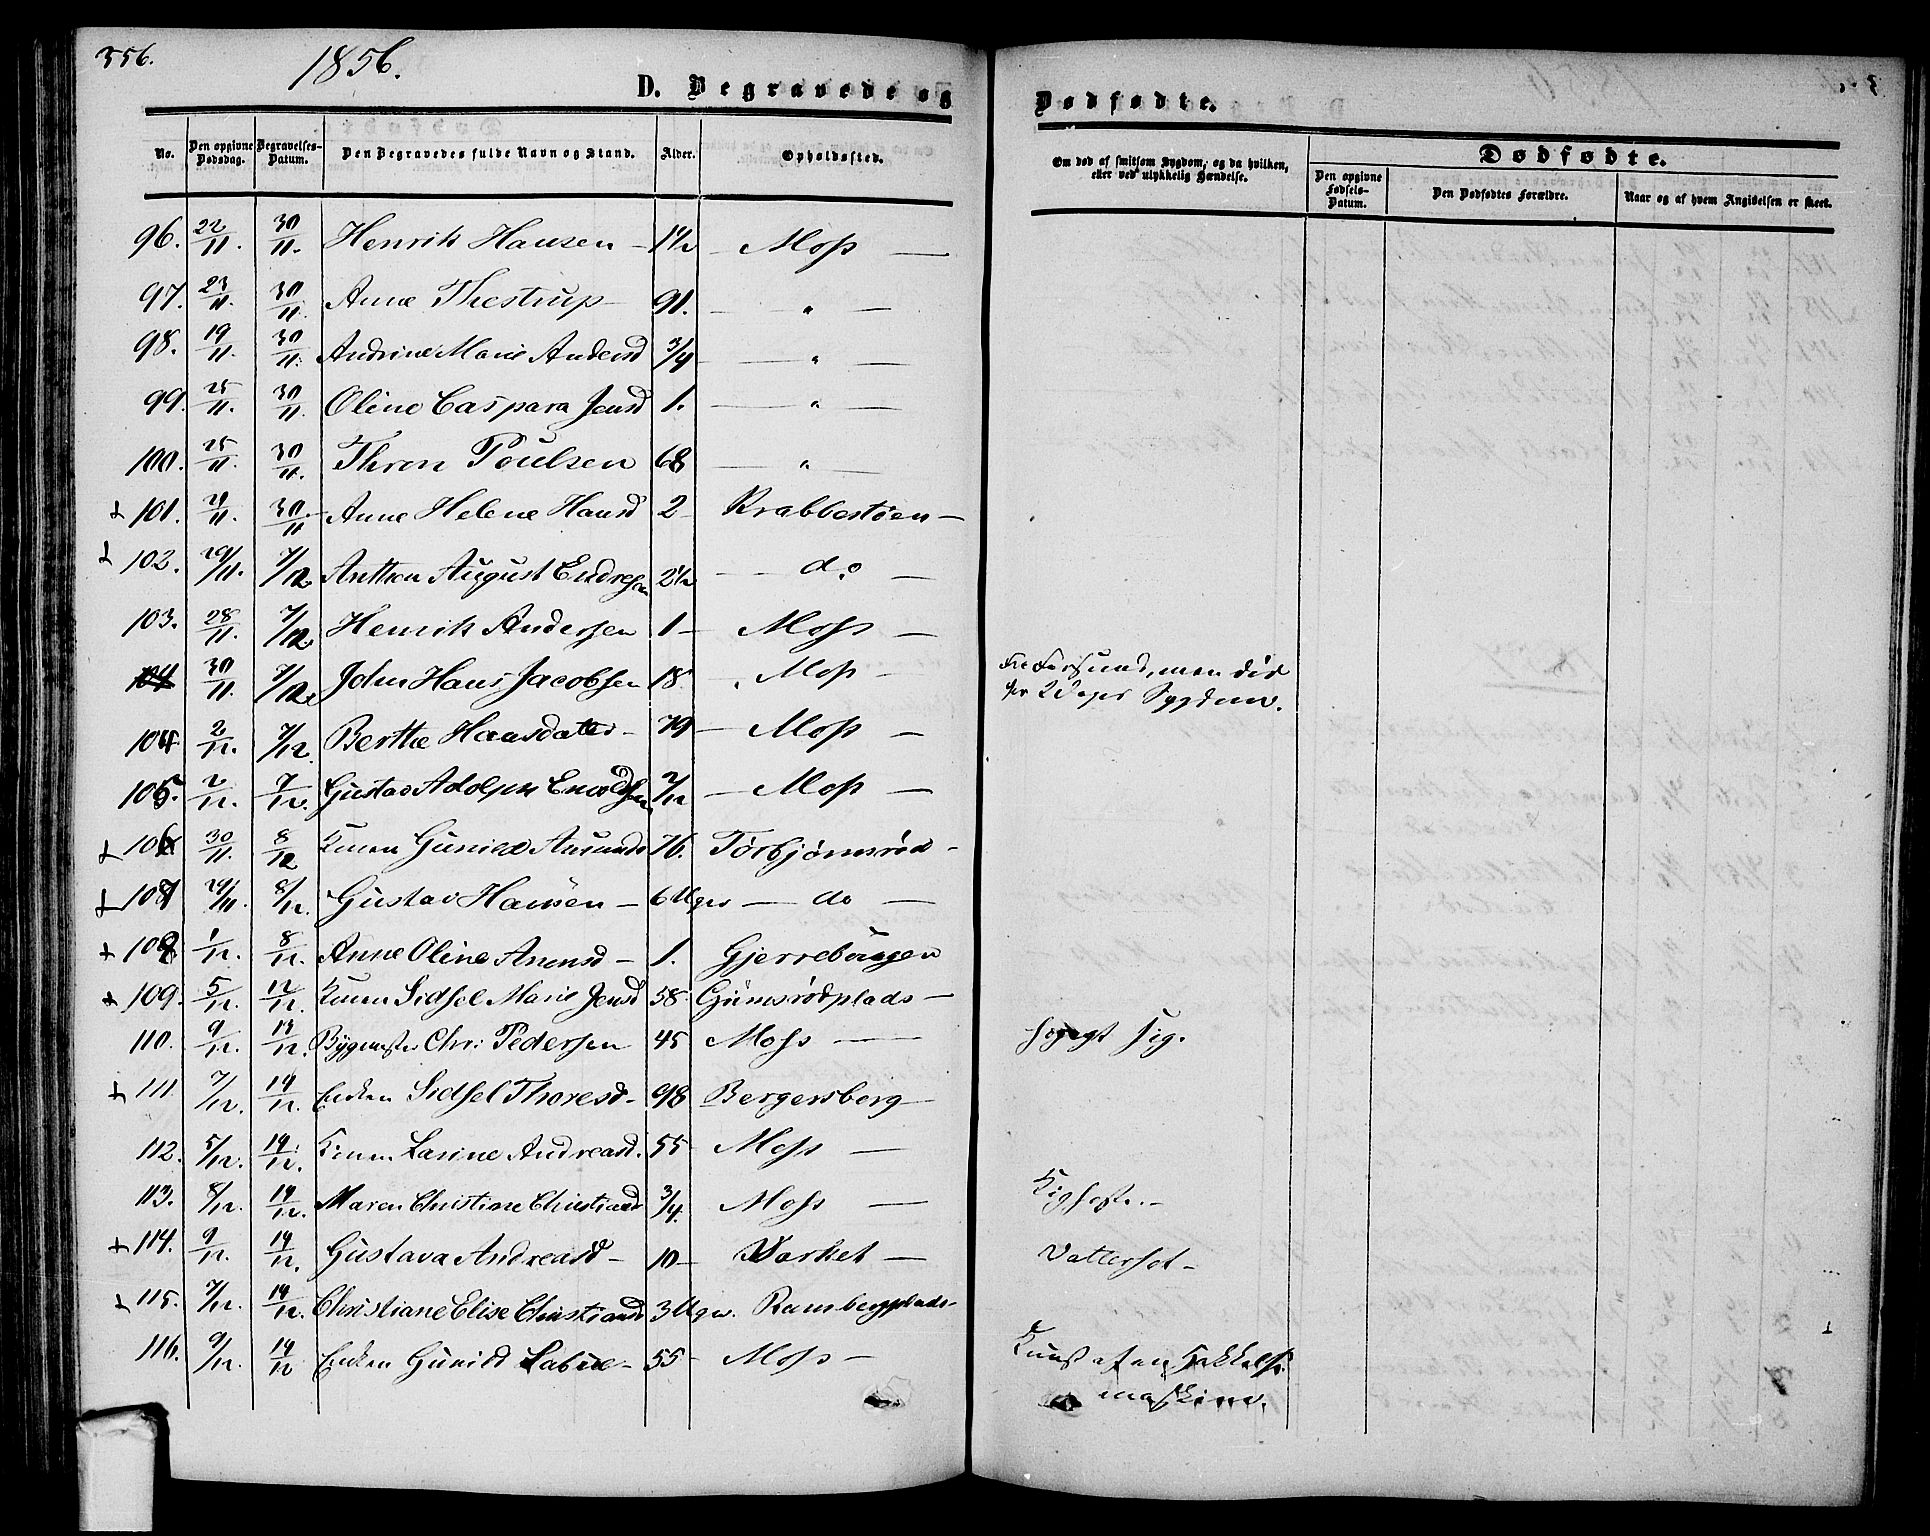 356.
1856.
D. Begravede og
Dødfødte.
No. Den opgivne Dødsdag. Begravelses-Datum. Den Begravedes fulde Navn og Stand. Alder. Opholdssted.
Om død af smitsom Sygdom, og da hvilken, eller ved ulykkelig Hændelse.
Dødfødte.
Den opgivne Fødsels-Datum. Den Dødfødtes Forældre. Naar og af hvem Angivelsen er skeet.
96. 22/11. 30/11. Henrik Hansen – 1 1/2 – Moss —
97. 23/11. 30/11. Anne Thestrup – 91. — „ —
98. 19/11. 30/11. Andrine Marie Andersd 3/4 — „ —
99. 25/11. 30/11. Oline Caspara Jensd 1. — „ —
100. 25/11. 30/11. Thron Poulsen 68 — „ —
101. 30/11 Anne Helene Hansd 2 – Krabbestøen –
102. 29/11. 7/12 Anthon August Endresen 2 1/2 — do —
103. 28/11. 7/12. Henrik Andersen 1 – Moss —
104 30/11. 7/12. John Hans Jacobsen 18. Moss —
2 Dages Sygdom.
104. 2/12. 7/12. Berthe Hansdatter – 79 – Moss —
105. 2/12. 7/12. Gustav Adolph 2/12 — Moss —
106 30/11. 8/12 Konen 76. Torbjørnsrød –
107 29/11 8/12. Gustav Hansen – 6 Uger — do —
108 1/12. 8/12. Anne Oline – 1. Gjerrebøugen
109. 5/12. 12/12. Konen Sidsel Marie Jensd 58. Gumsrødplads –
110. 9/12. 13/12. Bygmester Chr: Pedersen 45 Moss —
sig.
111. 7/12. 14/12. Enken Sidsel Thoresd – 98 Bergersborg –
112. 5/12. 14/12. Konen Larine Andreasd. 55 – Moss —
113. 8/12. 14/12. Maren Christine Christiansd 3/4. Moss —
Kighoste. –
114. 9/12. 14/12. Gustava Andreasd – 10 – Værket —
Vattersot –
115. 7/12. 14/12. Christiane Elise Christiansd 3 Uger. Ramsbergplads –
116. 9/12. 14/12 Enken Gunild – 55 – Moss –
af en Hakkelse-
maskine.